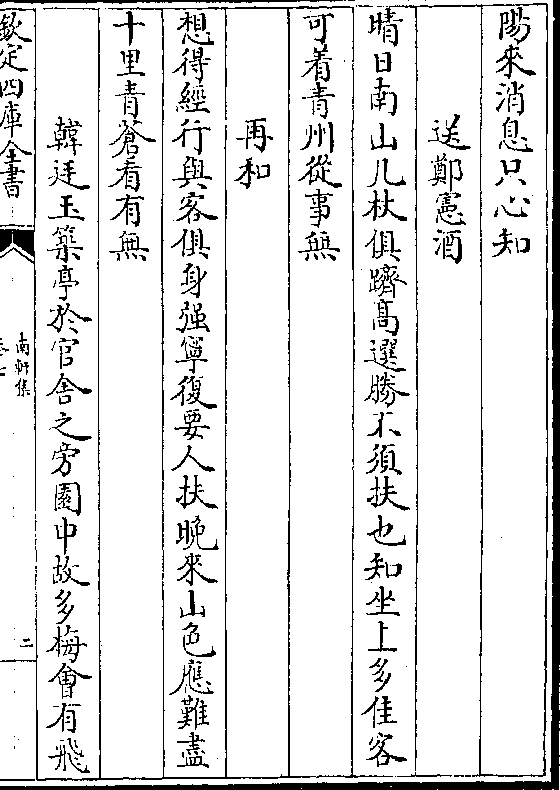 陽來消息只心知
送鄭憲酒
晴日南山几杖俱躋髙選勝不須扶也知坐上多佳客
可着青州從事無
再和
想得經行與客俱身强寧復要人扶晚來山色應難盡
十里青蒼看有無
韓廷玉築亭於官舍之旁園中故多梅㑹有飛
欽定四庫全書
南軒集
二